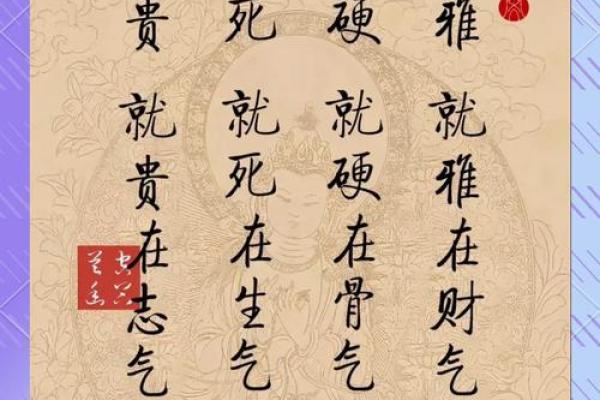 雅 就雅在财气
硬 就硬在骨气
死 就死在生气
贵 就贵在志气